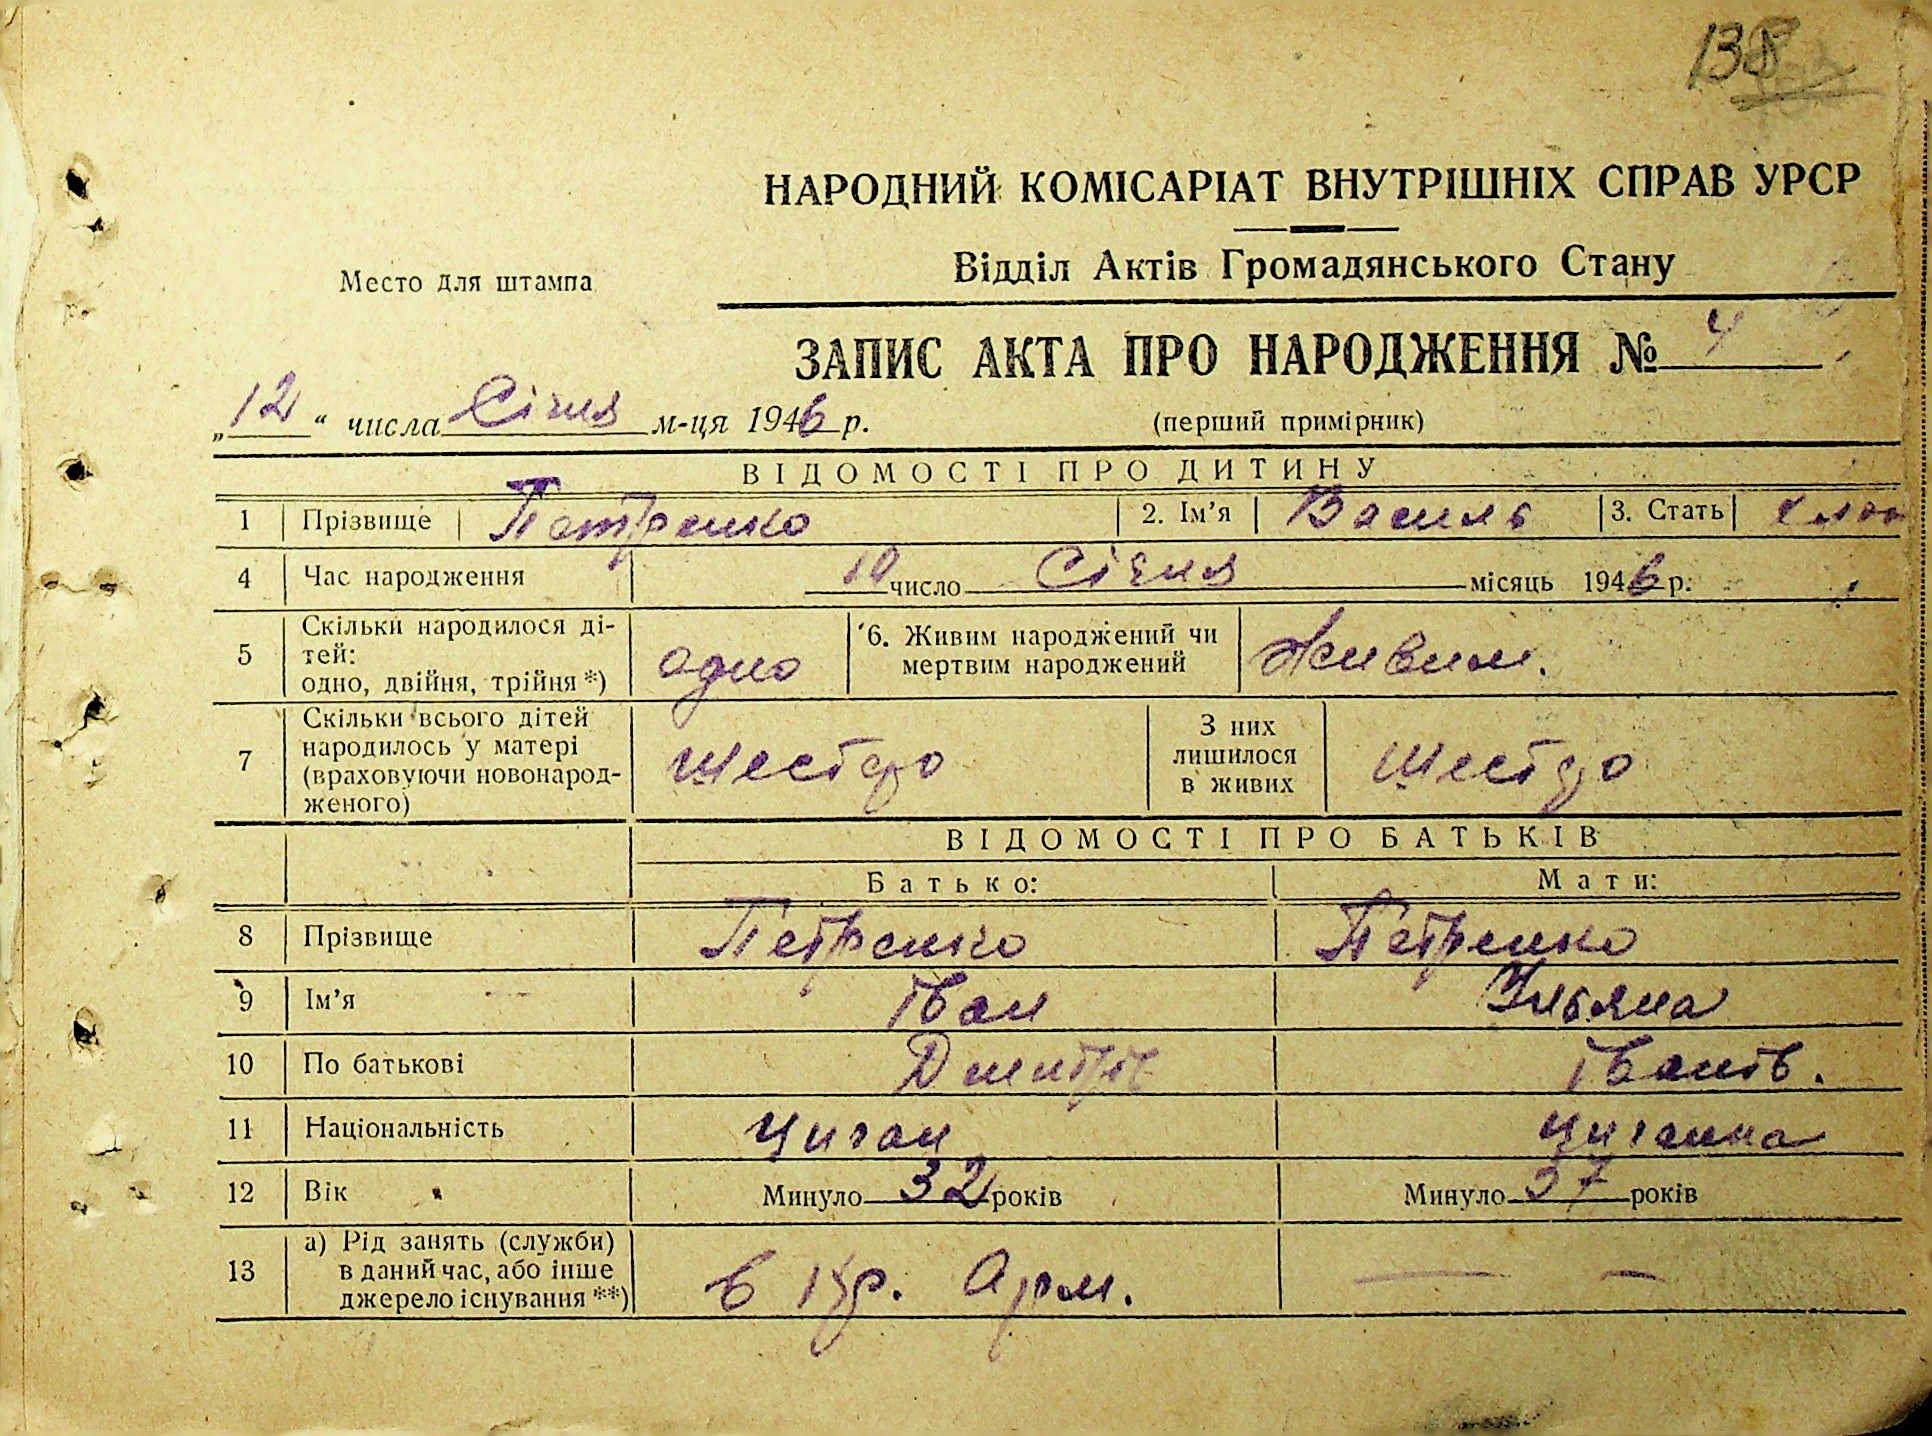 138
НАРОДНИЙ КОМІСАРІАТ ВНУТРІШНІХ СПРАВ УРСР
Відділ Актів Громадянського Стану
Место для штампа
ЗАПИС АКТА ПРО НАРОДЖЕННЯ № 4
„12“ числа Січня м-ця 1946 р.
(перший примірник)
ВІДОМОСТІ ПРО ДИТИНУ
1 Прізвище Петренко 2. Ім’я Василь 3. Стать
4 Час народження 10 число Січня місяць 1946 р.
5 Скільки народилося ді-
тей:
одно, двійня, трійня *) одно 6. Живим народжений чи
мертвим народжений Живим.
7 Скільки всього дітей
народилось у матері
(враховуючи новонарод-
женого) шестеро З них
лишилося
в живих шестеро
ВІДОМОСТІ ПРО БАТЬКІВ
Батько: Мати:
8 Прізвище Петренко Петренко
9 Ім’я Іван Ульяна
10 По батькові Дмитрів Іванів.
11 Національність Циган Циганка
12 Вік Минуло 32 років Минуло 37 років
13 а) Рід занять (служби)
в даний час, або інше
джерело існування **) в Кр. Арм. — —